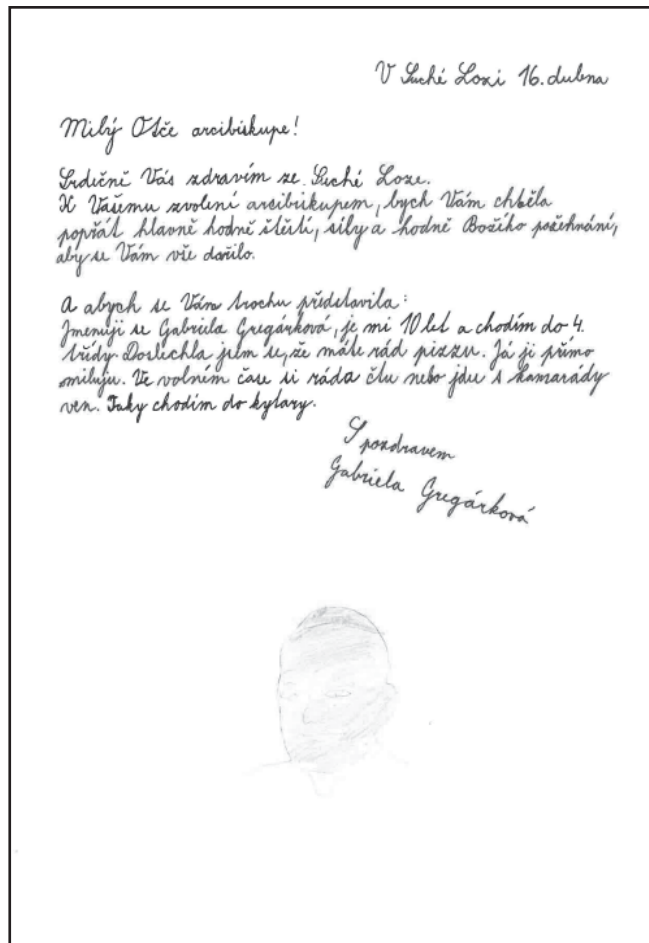 V Suché Lozi 16. dubna
Milý Otče arcibiskupe!
Srdečně Vás zdravím ze Suché Loze.
K Vašemu zvolení arcibiskupem, bych Vám chtěla
popřát hlavně hodně štěstí, síly a hodně Božího požehnání,
aby se Vám vše dařilo.
A abych se Vám trochu představila:
Jmenuji se Gabriela Gregárková, je mi 10 let a chodím do 4.
třídy. Doslechla jsem se, že máte rád pizzu. Já ji přímo
miluju. Ve volném čase si ráda čtu nebo jdu s kamarády
ven. Taky chodím do kytary.
S pozdravem
Gabriela Gregárková